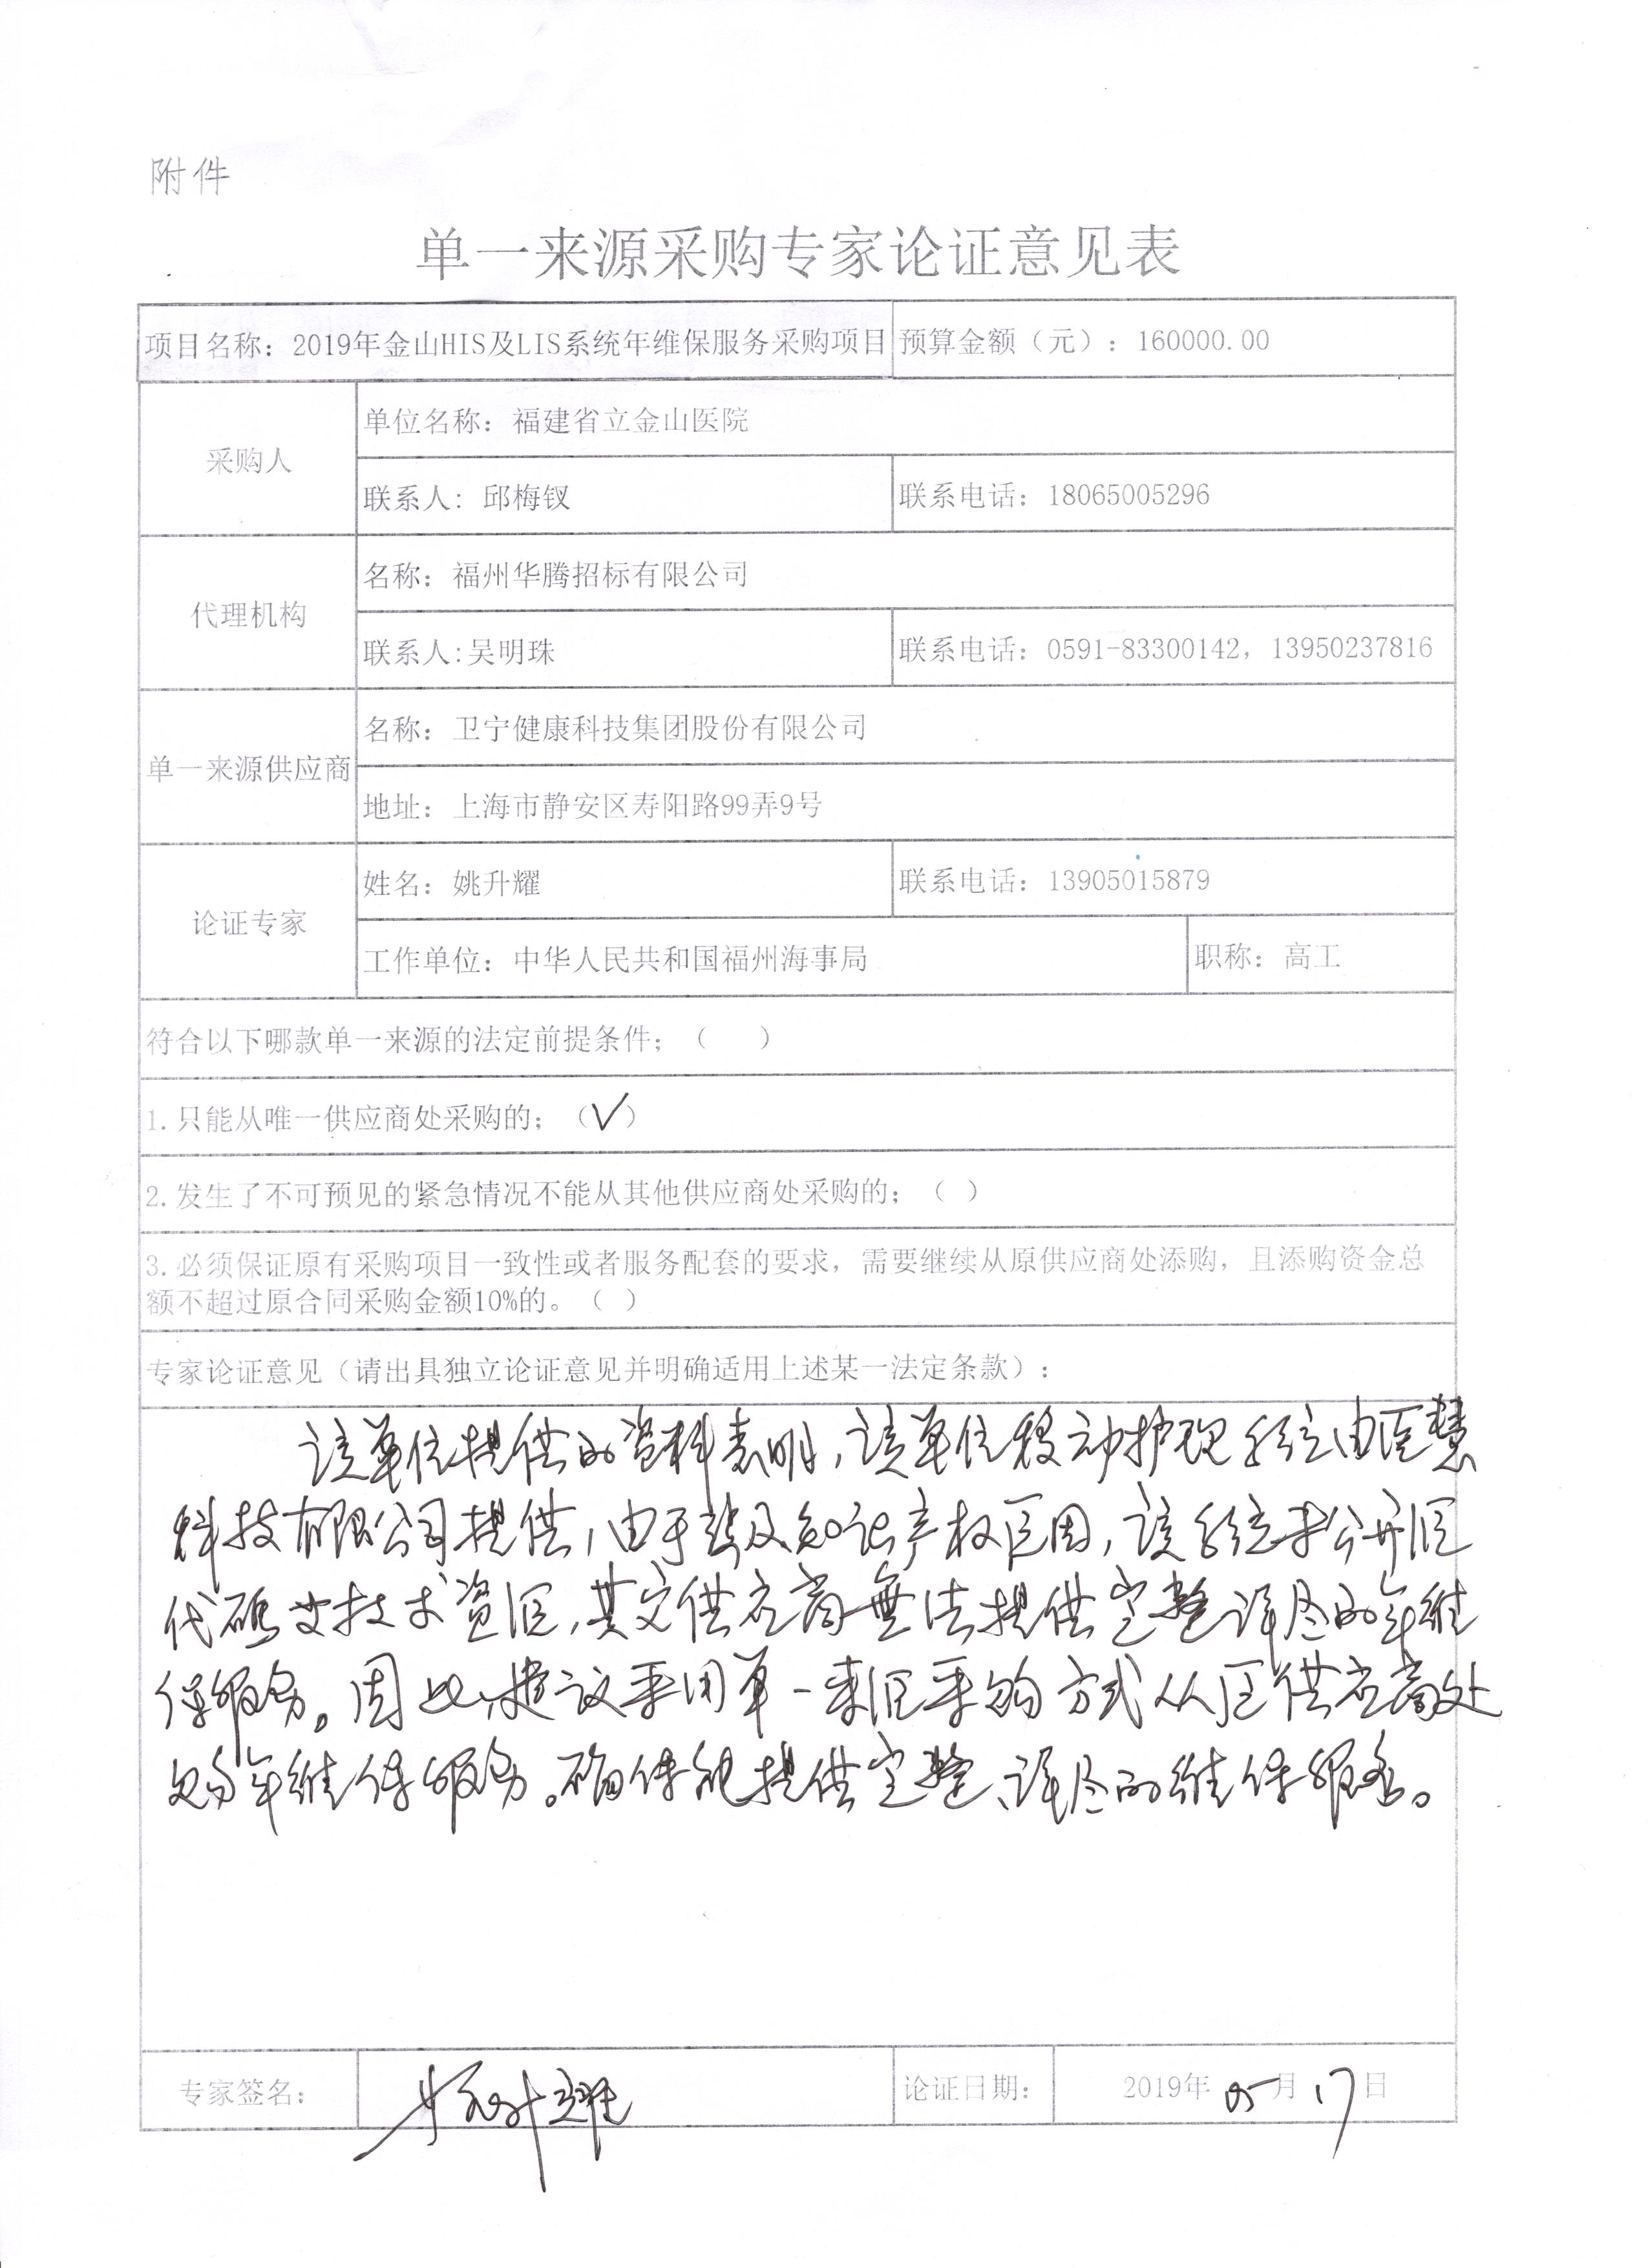 附件
单一来源采购专家论证意见表
项目名称：2019年金山HIS及LIS系统年维保服务采购项目 预算金额（元）：160000.00
采购人
单位名称：福建省立金山医院
联系人：邱梅钗 联系电话：18065005296
代理机构
名称：福州华腾招标有限公司
联系人:吴明珠 联系电话：0591-83300142，13950237816
单一来源供应商
名称：卫宁健康科技集团股份有限公司
地址：上海市静安区寿阳路99弄9号
论证专家
姓名：姚升耀 联系电话：13905015879
工作单位：中华人民共和国福州海事局 职称：高工
符合以下哪款单一来源的法定前提条件；（ ）
1.只能从唯一供应商处采购的；（√）
2.发生了不可预见的紧急情况不能从其他供应商处采购的；（ ）
3.必须保证原有采购项目一致性或者服务配套的要求，需要继续从原供应商处添购，且添购资金总
额不超过原合同采购金额10%的。（ ）
专家论证意见（请出具独立论证意见并明确适用上述某一法定条款）：
该单位提供的资料表明，该单位移动护理系统由医慧
科技有限公司提供，由于涉及知识产权原因，该系统未公开源
代码及技术资源，其它供应商无法提供完整详尽的年维
保服务。因此，建议采用单一来源采购方式从原供应商处
购年维保服务。确保能提供完整、详尽的维保服务。
专家签名： 姚升耀 论证日期： 2019年05月17日